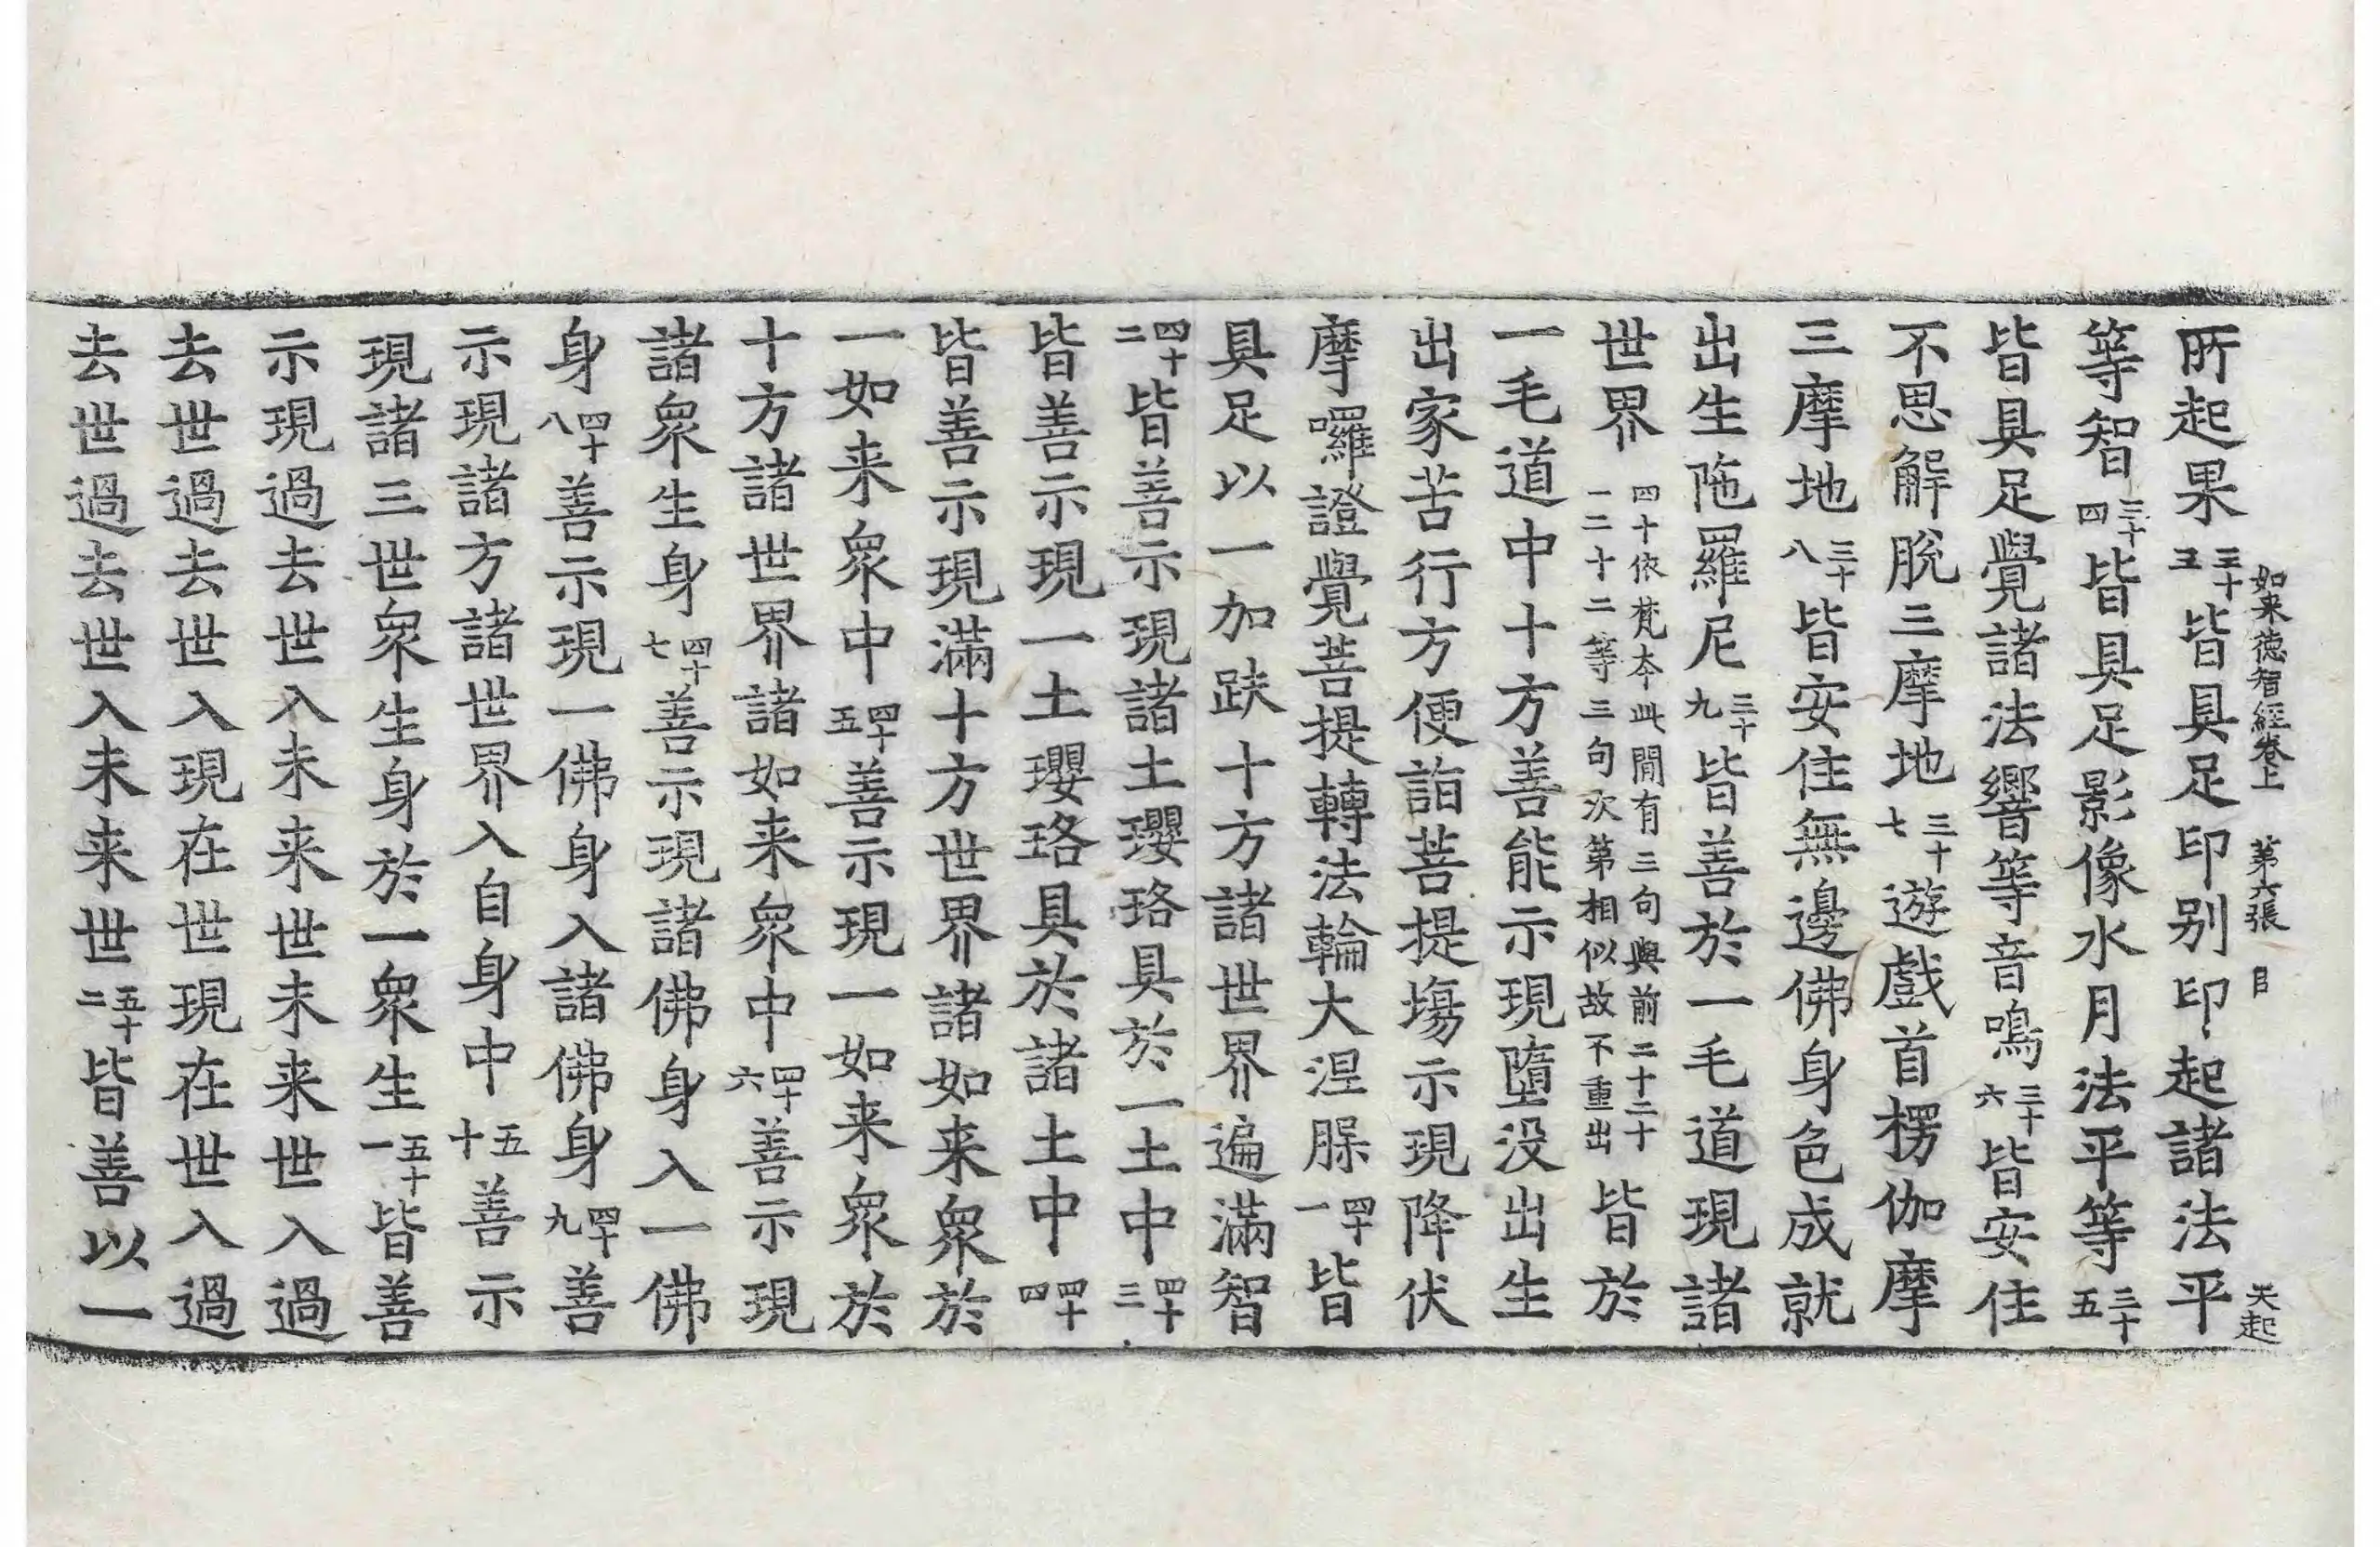 如来徳智經卷上 第六張 目 天起
所起果三十三皆具足印別印起諸法平
等智三十四皆具足影像水月法平等三十五
皆具足覺諸法響等音鳴三十六皆安住
不思解脫三摩地三十七遊戲首楞伽摩
三摩地三十八皆安住無邊佛身色成就
出生陁羅尼三十九皆善於一毛道現諸
世界四十依梵本此間有三句與前二十二十一二十二等三句次第相似故不重出皆於
一毛道中十方善能示現墮没出生
出家苦行方便詣菩提場示現降伏
摩囉證覺菩提轉法輪大涅槃四十一皆
具足以一加趺十方諸世界遍滿智
四十二皆善示現諸土瓔珞具於一土中四十三
皆善示現一土瓔珞具於諸土中四十四
皆善示現滿十方世界諸如来衆於
一如来衆中四十五善示現一如来衆於
十方諸世界諸如来衆中四十六善示現
諸衆生身四十七善示現諸佛身入一佛
身四十八善示現一佛身入諸佛身四十九善
示現諸方諸世界入自身中五十善示
現諸三世衆生身於一衆生五十一皆善
示現過去世入未来世未来世入過
去世過去世入現在世現在世入過
去世過去世入未来世五十二皆善以一